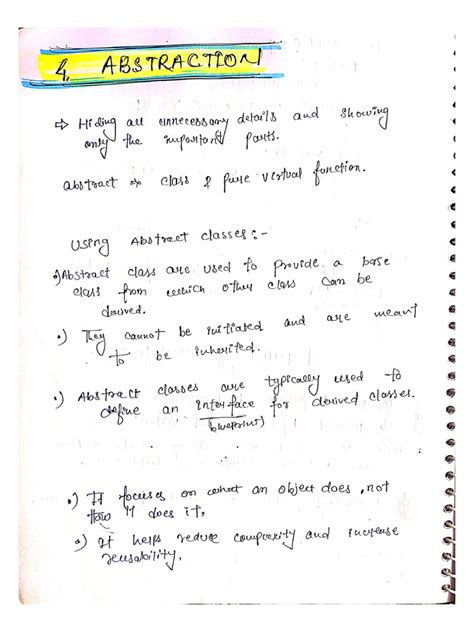 4. ABSTRACTION
⇒ Hiding all unnecessary details and showing
only the important parts.
abstract ⇒ class & pure virtual function.
Using Abstract classes:-
•) Abstract class are used to provide a base
class from which other class can be
derived.
•) They cannot be initiated and are meant
to be inherited.
•) Abstract classes are typically used to
define an interface for derived classes.
(blueprint)
•) It focuses on what an object does, not
how it does it,
•) It helps reduce complexity and increase
reusability.